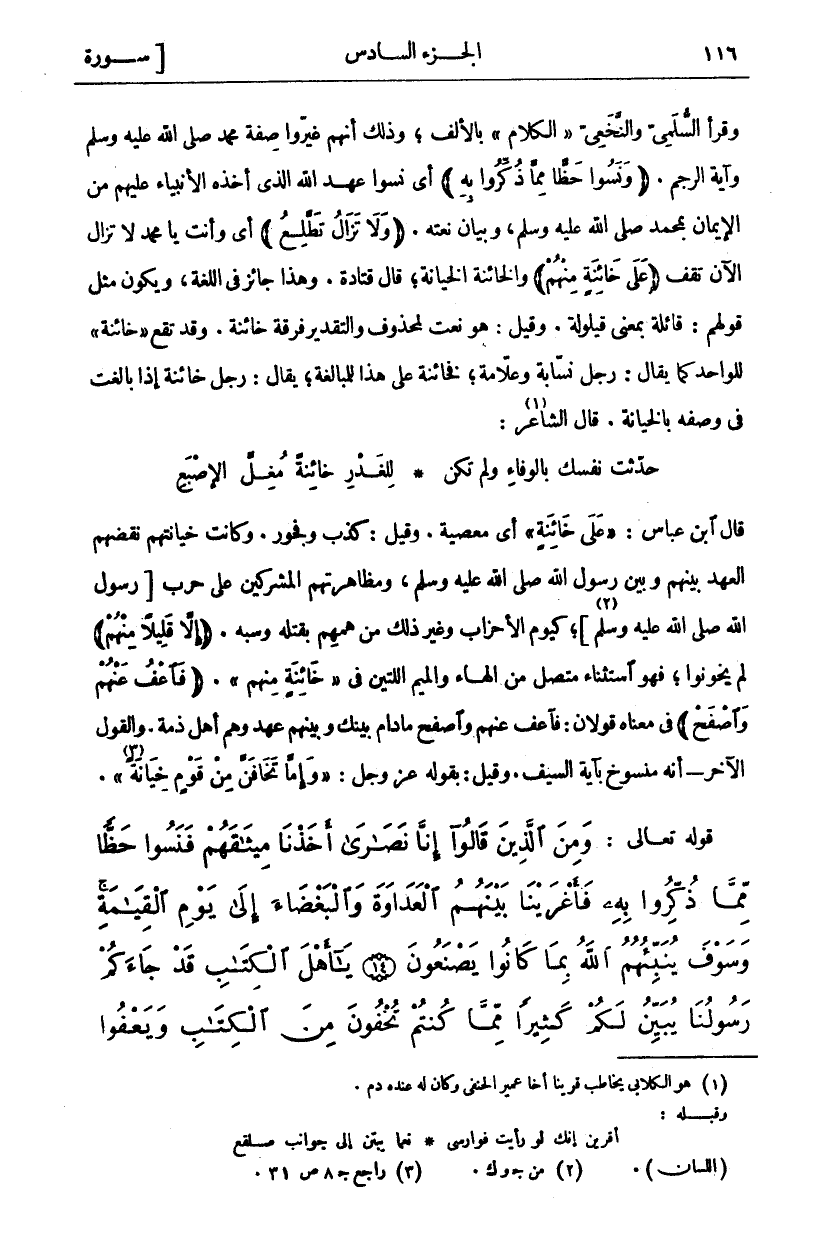 ١١٦ الجــزء السادس [ ســورة
وقرأ السُّلَمِىّ والنَّخَعِىّ « الكلام » بالألف ؛ وذلك أنهم غيّروا صفة محمد صلى الله عليه وسلم
وآية الرجم . ( وَنَسُوا حَظًّا مِمَّا ذُكِّرُوا بِهِ ) أى نسوا عهد الله الذى أخذه الأنبياء عليهم من
الإيمان بمحمد صلى الله عليه وسلم، وبيان نعته . ( وَلَا تَزَالُ تَطَّلِعُ ) أى وأنت يا محمد لا تزال
الآن تقف (عَلَى خَائِنَةٍ مِنْهُمْ) والخائنة الخيانة؛ قال قتادة . وهذا جائز فى اللغة، ويكون مثل
قولهم : قائلة بمعنى قيلولة . وقيل : هو نعت لمحذوف والتقدير فرقة خائنة . وقد تقع «خائنة»
للواحد كما يقال : رجل نسّابة وعلّامة؛ فخائنة على هذا للمبالغة؛ يقال : رجل خائنة إذا بالغت
فى وصفه بالخيانة . قال الشاعر (١) :
حدّثت نفسك بالوفاء ولم تكن * للغَدْرِ خائنةً مُغِلَّ الإصْبَعِ
قال ٱبن عباس : «عَلَى خَائِنَةٍ» أى معصية . وقيل : كذب وفجور . وكانت خيانتهم نقضهم
العهد بينهم وبين رسول الله صلى الله عليه وسلم ، ومظاهرتهم المشركين على حرب [ رسول
الله صلى الله عليه وسلم (٢) ]؛ كيوم الأحزاب وغير ذلك من همهم بقتله وسبه . (إِلَّا قَلِيلًا مِنْهُمْ)
لم يخونوا ؛ فهو ٱستثناء متصل من الهاء والميم اللتين فى « خَائِنَةٍ منهم » . ( فَٱعْفُ عَنْهُمْ
وَٱصْفَحْ ) فى معناه قولان : فٱعف عنهم وٱصفح مادام بينك وبينهم عهد وهم أهل ذمة . والقول
الآخر — أنه منسوخ بآية السيف . وقيل : بقوله عز وجل : «وَإِمَّا تَخَافَنَّ مِنْ قَوْمٍ خِيَانَةً (٣)» .
قوله تعالى : وَمِنَ ٱلَّذِينَ قَالُوٓا إِنَّا نَصَٰرَىٰٓ أَخَذْنَا مِيثَٰقَهُمْ فَنَسُوا حَظًّا
مِّمَّا ذُكِّرُوا بِهِۦ فَأَغْرَيْنَا بَيْنَهُمُ ٱلْعَدَاوَةَ وَٱلْبَغْضَاءَ إِلَىٰ يَوْمِ ٱلْقِيَٰمَةِ ۚ
وَسَوْفَ يُنَبِّئُهُمُ ٱللَّهُ بِمَا كَانُوا يَصْنَعُونَ ﴿١٤﴾ يَٰٓأَهْلَ ٱلْكِتَٰبِ قَدْ جَاءَكُمْ
رَسُولُنَا يُبَيِّنُ لَكُمْ كَثِيرًا مِّمَّا كُنتُمْ تُخْفُونَ مِنَ ٱلْكِتَٰبِ وَيَعْفُوا
(١) هو الكلابي يخاطب قرينا أخا عمير الحنفى وكان له عنده دم .
وقبـــله :
أقرين إنك لو رأيت فوارسى * نعما يبتن إلى جوانب صلقع
(اللسان) . (٢) من جـ و ك . (٣) راجع جـ ٨ ص ٣١ .